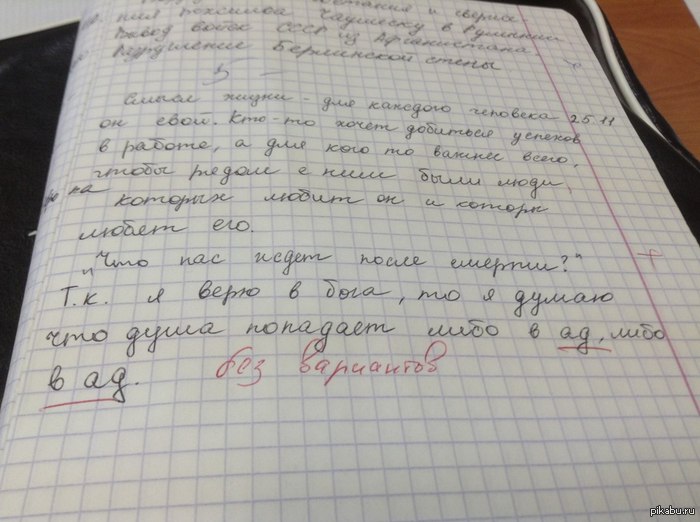 и сверга
Чаушеску в Румынии
Вывод войск СССР из Афганистана
Разрушение Берлинской стены
5 –
Смысл жизни - для каждого человека 25.11
он свой. Кто-то хочет добиться успехов
в работе, а для кого то важнее всего,
чтобы рядом с ним были люди,
на которых любит он и которы
любет его.
"Что нас ждет после смерти?"
Т.к. я верю в бога, то я думаю
что душа попадает либо в ад, либо
в ад. без вариантов
pikabu.ru